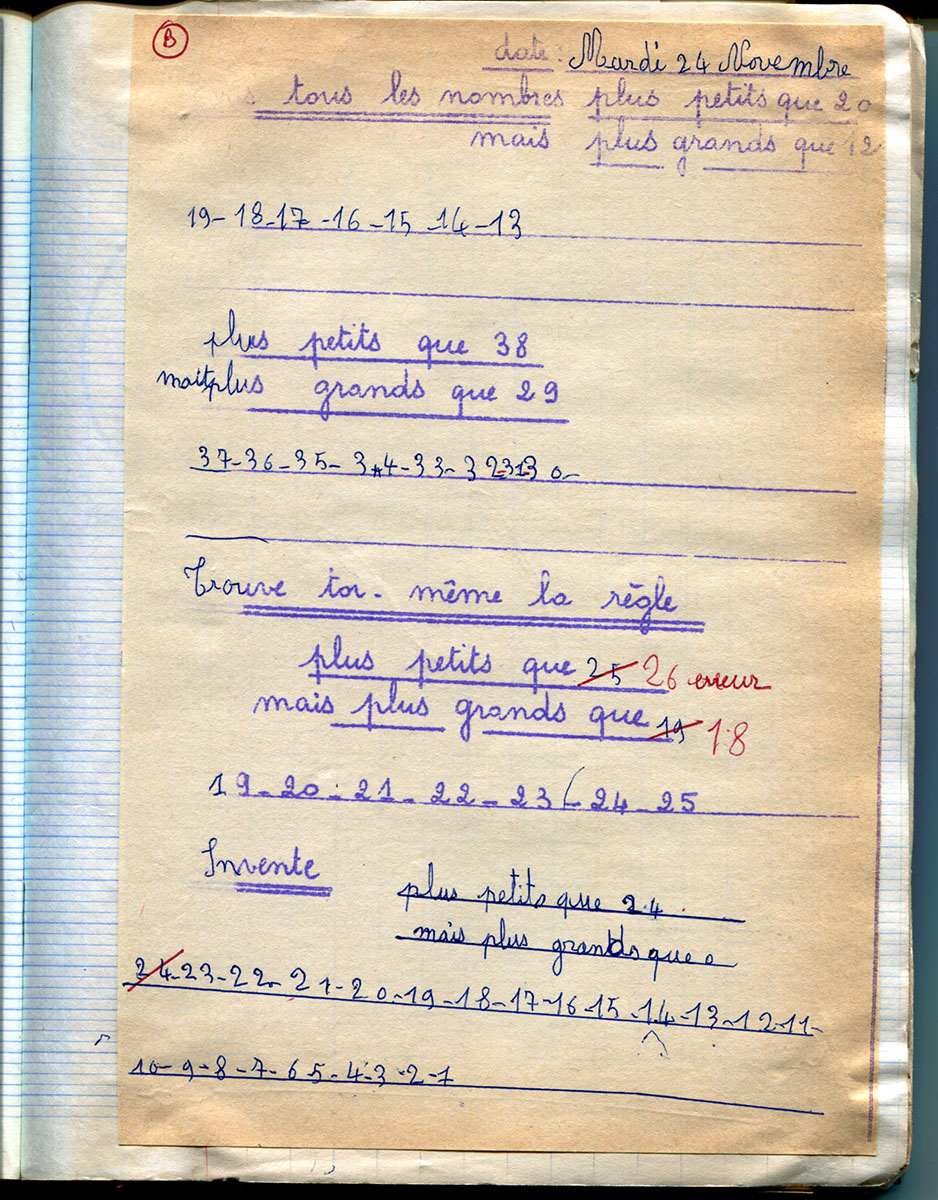 B
date : Mardi 24 Novembre
tous les nombres plus petits que 20
mais plus grands que 12
19-18-17-16-15-14-13
plus petits que 38
mais plus grands que 29
37-36-35-34-33-32-31-30-
Trouve toi-même la règle
plus petits que 25 26 erreur
mais plus grands que 19 18
19-20-21-22-23-24-25
Invente
plus petits que 24
mais plus grands que 0
24-23-22-21-20-19-18-17-16-15-14-13-12-11-
10-9-8-7-6 5-4-3-2-1